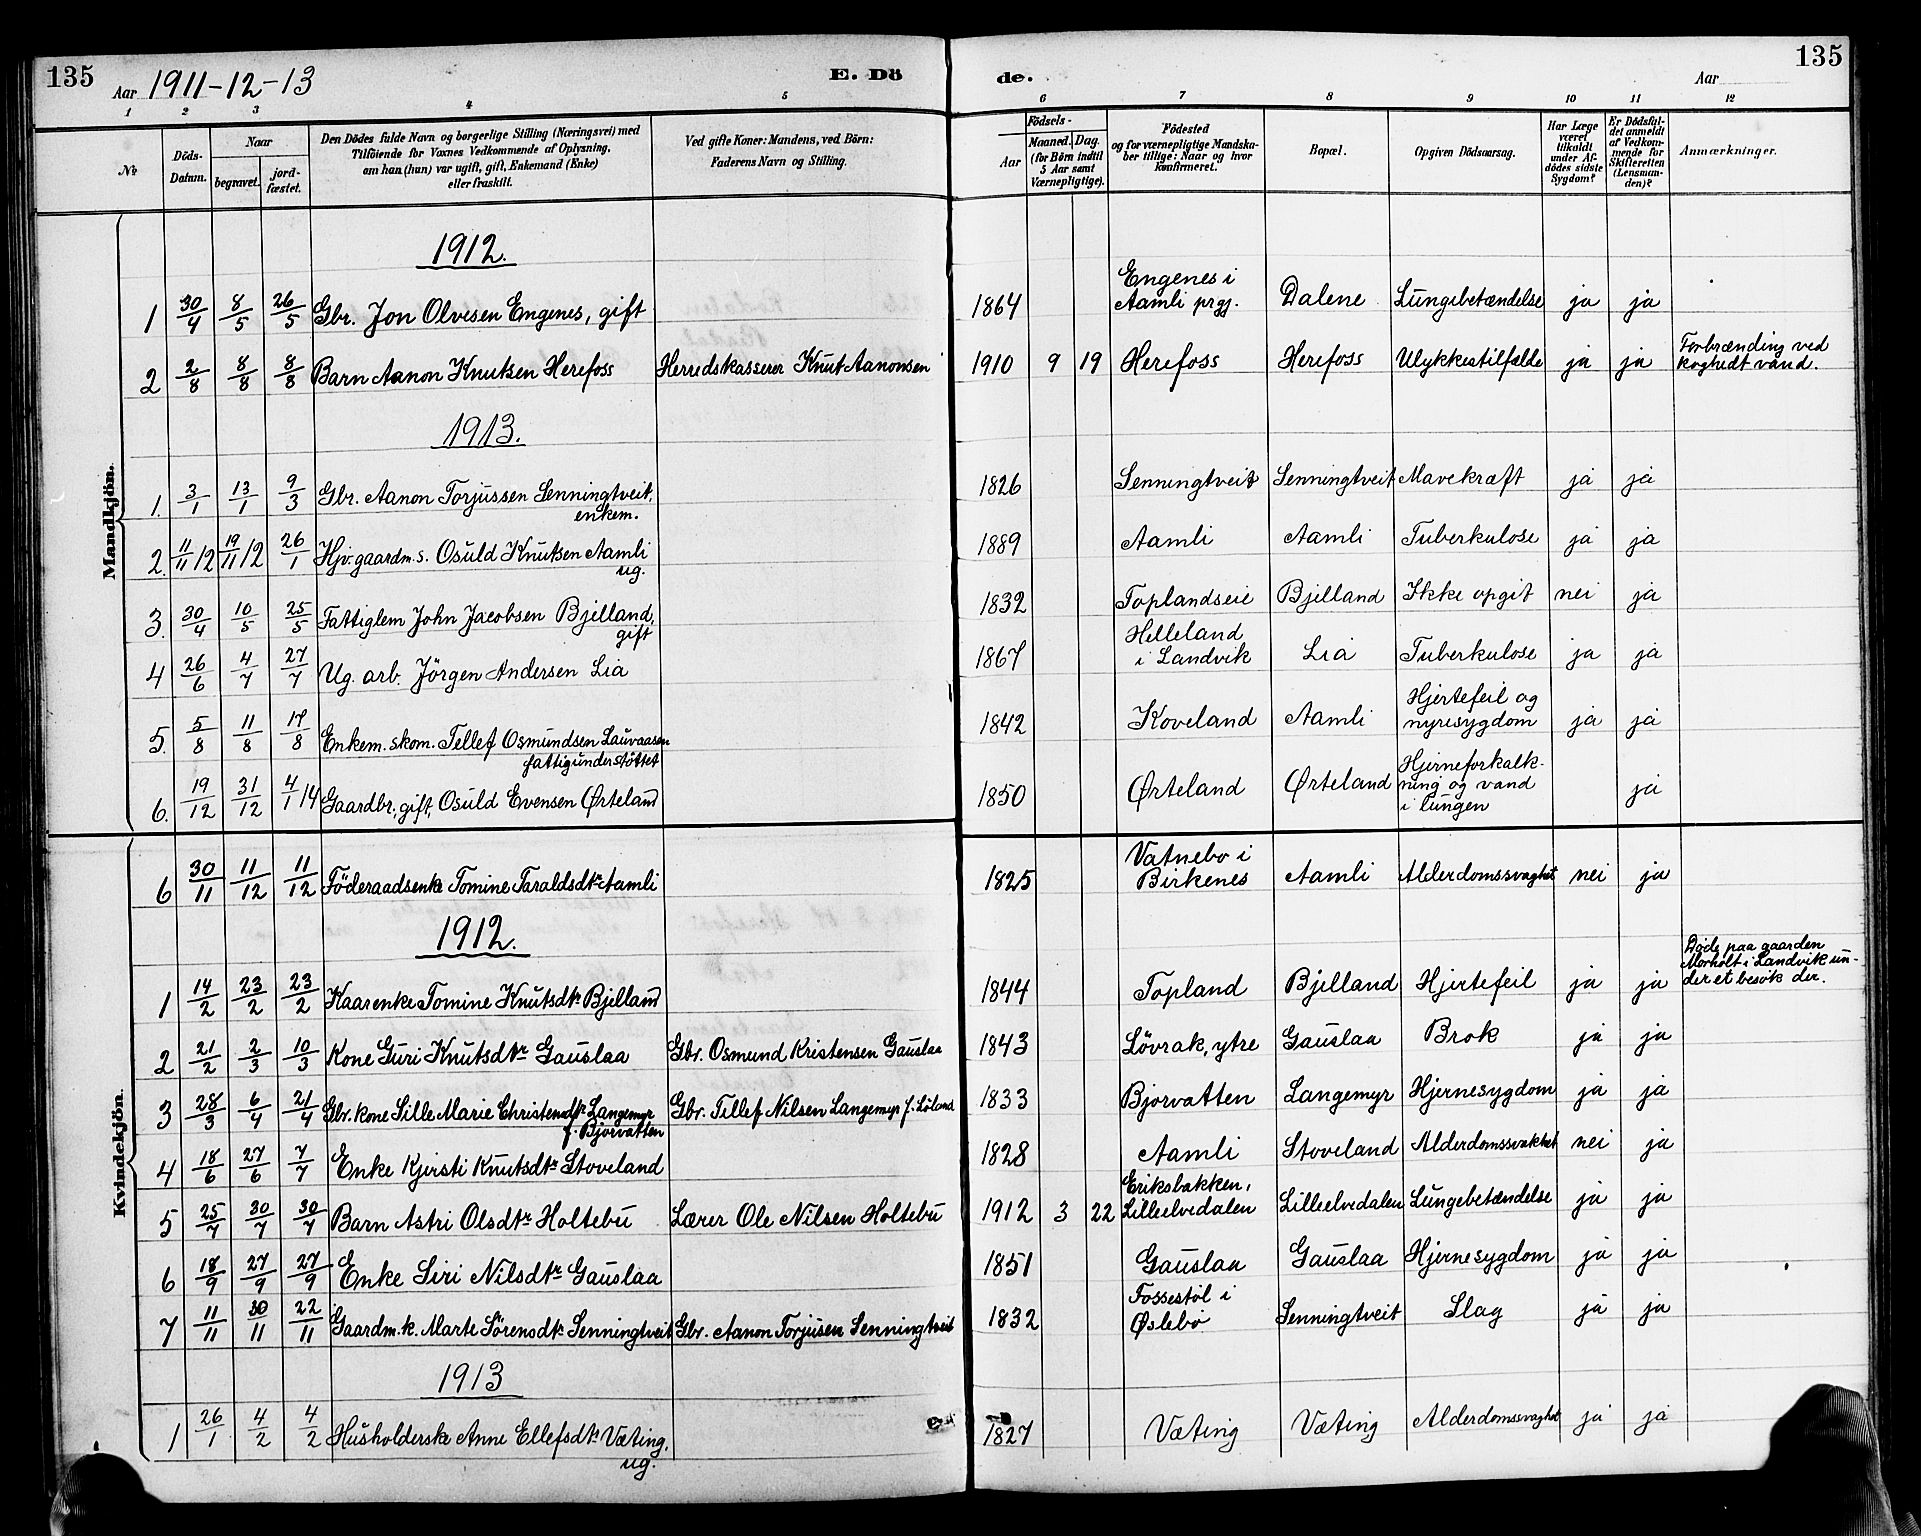 135 Aar 1911-12-13 E. Dö de. Aar 135
1 2 3 4 5 6 7 8 9 10 11 12
№
Döds-Datum.
Naar
begravet.
jordfæstet.
Den Dödes fulde Navn og borgerlige Stilling (Næringsvei) med
Tilföiende for Voxnes Vedkommende af Oplysning,
om han (hun) var ugift, gift, Enkemand (Enke)
eller fraskilt.
Ved gifte Koner: Mandens, ved Börn:
Faderens Navn og Stilling.
Födsels-
Aar
Maaned. Dag.
(for Börn indtil
5 Aar samt
Værnepligtige).
Födested
og for værnepligtige Mandskaber tillige: Naar og hvor
konfirmeret.
Bopæl.
Opgiven Dödsaarsag.
Har Læge
været
tilkaldt
under Afdödes sidste
Sygdom?
Er Dödsfaldet anmeldt
af Vedkommende for
Skifteretten
(Lensmanden)?
Anmærkninger.
Mandkjön.
1912.
1 30/4 8/5 26/5 Gbr. Jon Olvesen Engenes, gift 1864 Engenes i Aamli prgj. Dalene Lungebetændelse ja ja
2 2/8 8/8 8/8 Barn Aanon Knutsen Herefoss Herredskasserer Knut Aanonsen 1910 9 19 Herefoss Herefoss Ulykkestilfælde ja ja Forbrænding ved koghedt vand.
1913.
1. 3/1 13/1 9/3 Gbr. Aanon Torjussen Senningtveit, enkem. 1826 Senningtveit Senningtveit Mavekræft ja ja
2. 11/11/12 19/11/12 26/1 Hjv. gaardm. s. Osuld Knutsen Aamli ug. 1889 Aamli Aamli Tuberkulose ja ja
3. 30/4 10/5 25/5 Fattiglem John Jacobsen Bjelland, gift 1832 Toplandseie Bjelland Ikke opgit nei ja
4 26/6 4/7 27/7 Ug. arb. Jörgen Andersen Lia 1867 Helleland i Landvik Lia Tuberkulose ja ja
5. 5/8 11/8 17/8 Enkem. skom. Tellef Osmundsen Lauvaasen fattigunderstöttet 1842 Koveland Aamli Hjertefeil og nyresygdom ja ja
6. 19/12 31/12 4/1 14 Gaardbr., gift, Osuld Evensen Ørteland 1850 Ørteland Ørteland Hjerneforkalkning og vand i lungen ja
Kvindekjön.
6 30/11 11/12 11/12 Föderaadsenke Tomine Taraldsdtr Aamli 1825 Vatnebo i Birkenes Aamli Alderdomssvaghet nei ja
1912.
1 14/2 23/2 23/2 Kaarenke Tomine Knutsdtr Bjelland 1844 Topland Bjelland Hjertefeil ja ja Døde paa gaarden Morholt i Landvik under et besøk der.
2 21/2 2/3 10/3 Kone Guri Knutsdtr Gauslaa Gbr. Osmund Kristensen Gauslaa 1843 Lövrak, ytre Gauslaa Brok ja ja
3 28/3 6/4 21/4 Gbr. kone Sille Marie Christensdtr Langemyr f. Bjorvatten Gbr. Tellef Nilsen Langemyr f. Löland 1833 Bjorvatten Langemyr Hjernesygdom ja ja
4 18/6 27/6 7/7 Enke Kjersti Knutsdtr Stoveland 1828 Aamli Stoveland Alderdomssvakhet nei ja
5 25/7 30/7 30/7 Barn Astri Olsdtr Holtebu Lærer Ole Nilsen Holtebu 1912 3 22 Eriksbakken, Lilleelvedalen Lilleelvedalen Lungebetændelse ja ja
6 18/9 27/9 27/9 Enke Siri Nilsdtr Gauslaa 1851 Gauslaa Gauslaa Hjernesygdom ja ja
7 11/11 30/11 22/11 Gaardm. k. Marte Sörensdtr Senningtveit Gbr. Aanon Torjusen Senningtveit 1832 Fossestöl i Øslebø Senningtveit Slag ja ja
1913
1 26/1 4/2 4/2 Husholderske Anne Ellefsdtr Væting, ug. 1827 Væting Væting Alderdomssvaghet ja ja